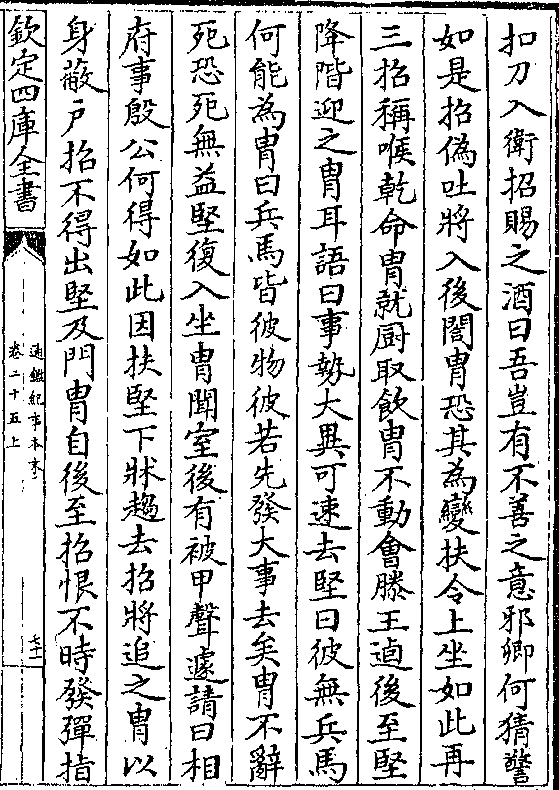 扣刀入衛招賜之酒曰吾豈有不善之意邪卿何猜警
如是招偽吐將入後閤胄恐其為變扶令上坐如此再
三招稱喉乾命胄就厨取飲胄不動會滕王逌後至堅
降階迎之胄耳語曰事勢大異可速去堅曰彼無兵馬
何能為胄曰兵馬皆彼物彼若先發大事去矣胄不辭
死恐死無益堅復入坐胄聞室後有被甲聲遽請曰相
府事殷公何得如此因扶堅下牀趨去招將追之胄以
身蔽户招不得出堅及門胄自後至招恨不時發彈指
欽定四庫全書
通鑑紀事本末
卷二十五上
七十一